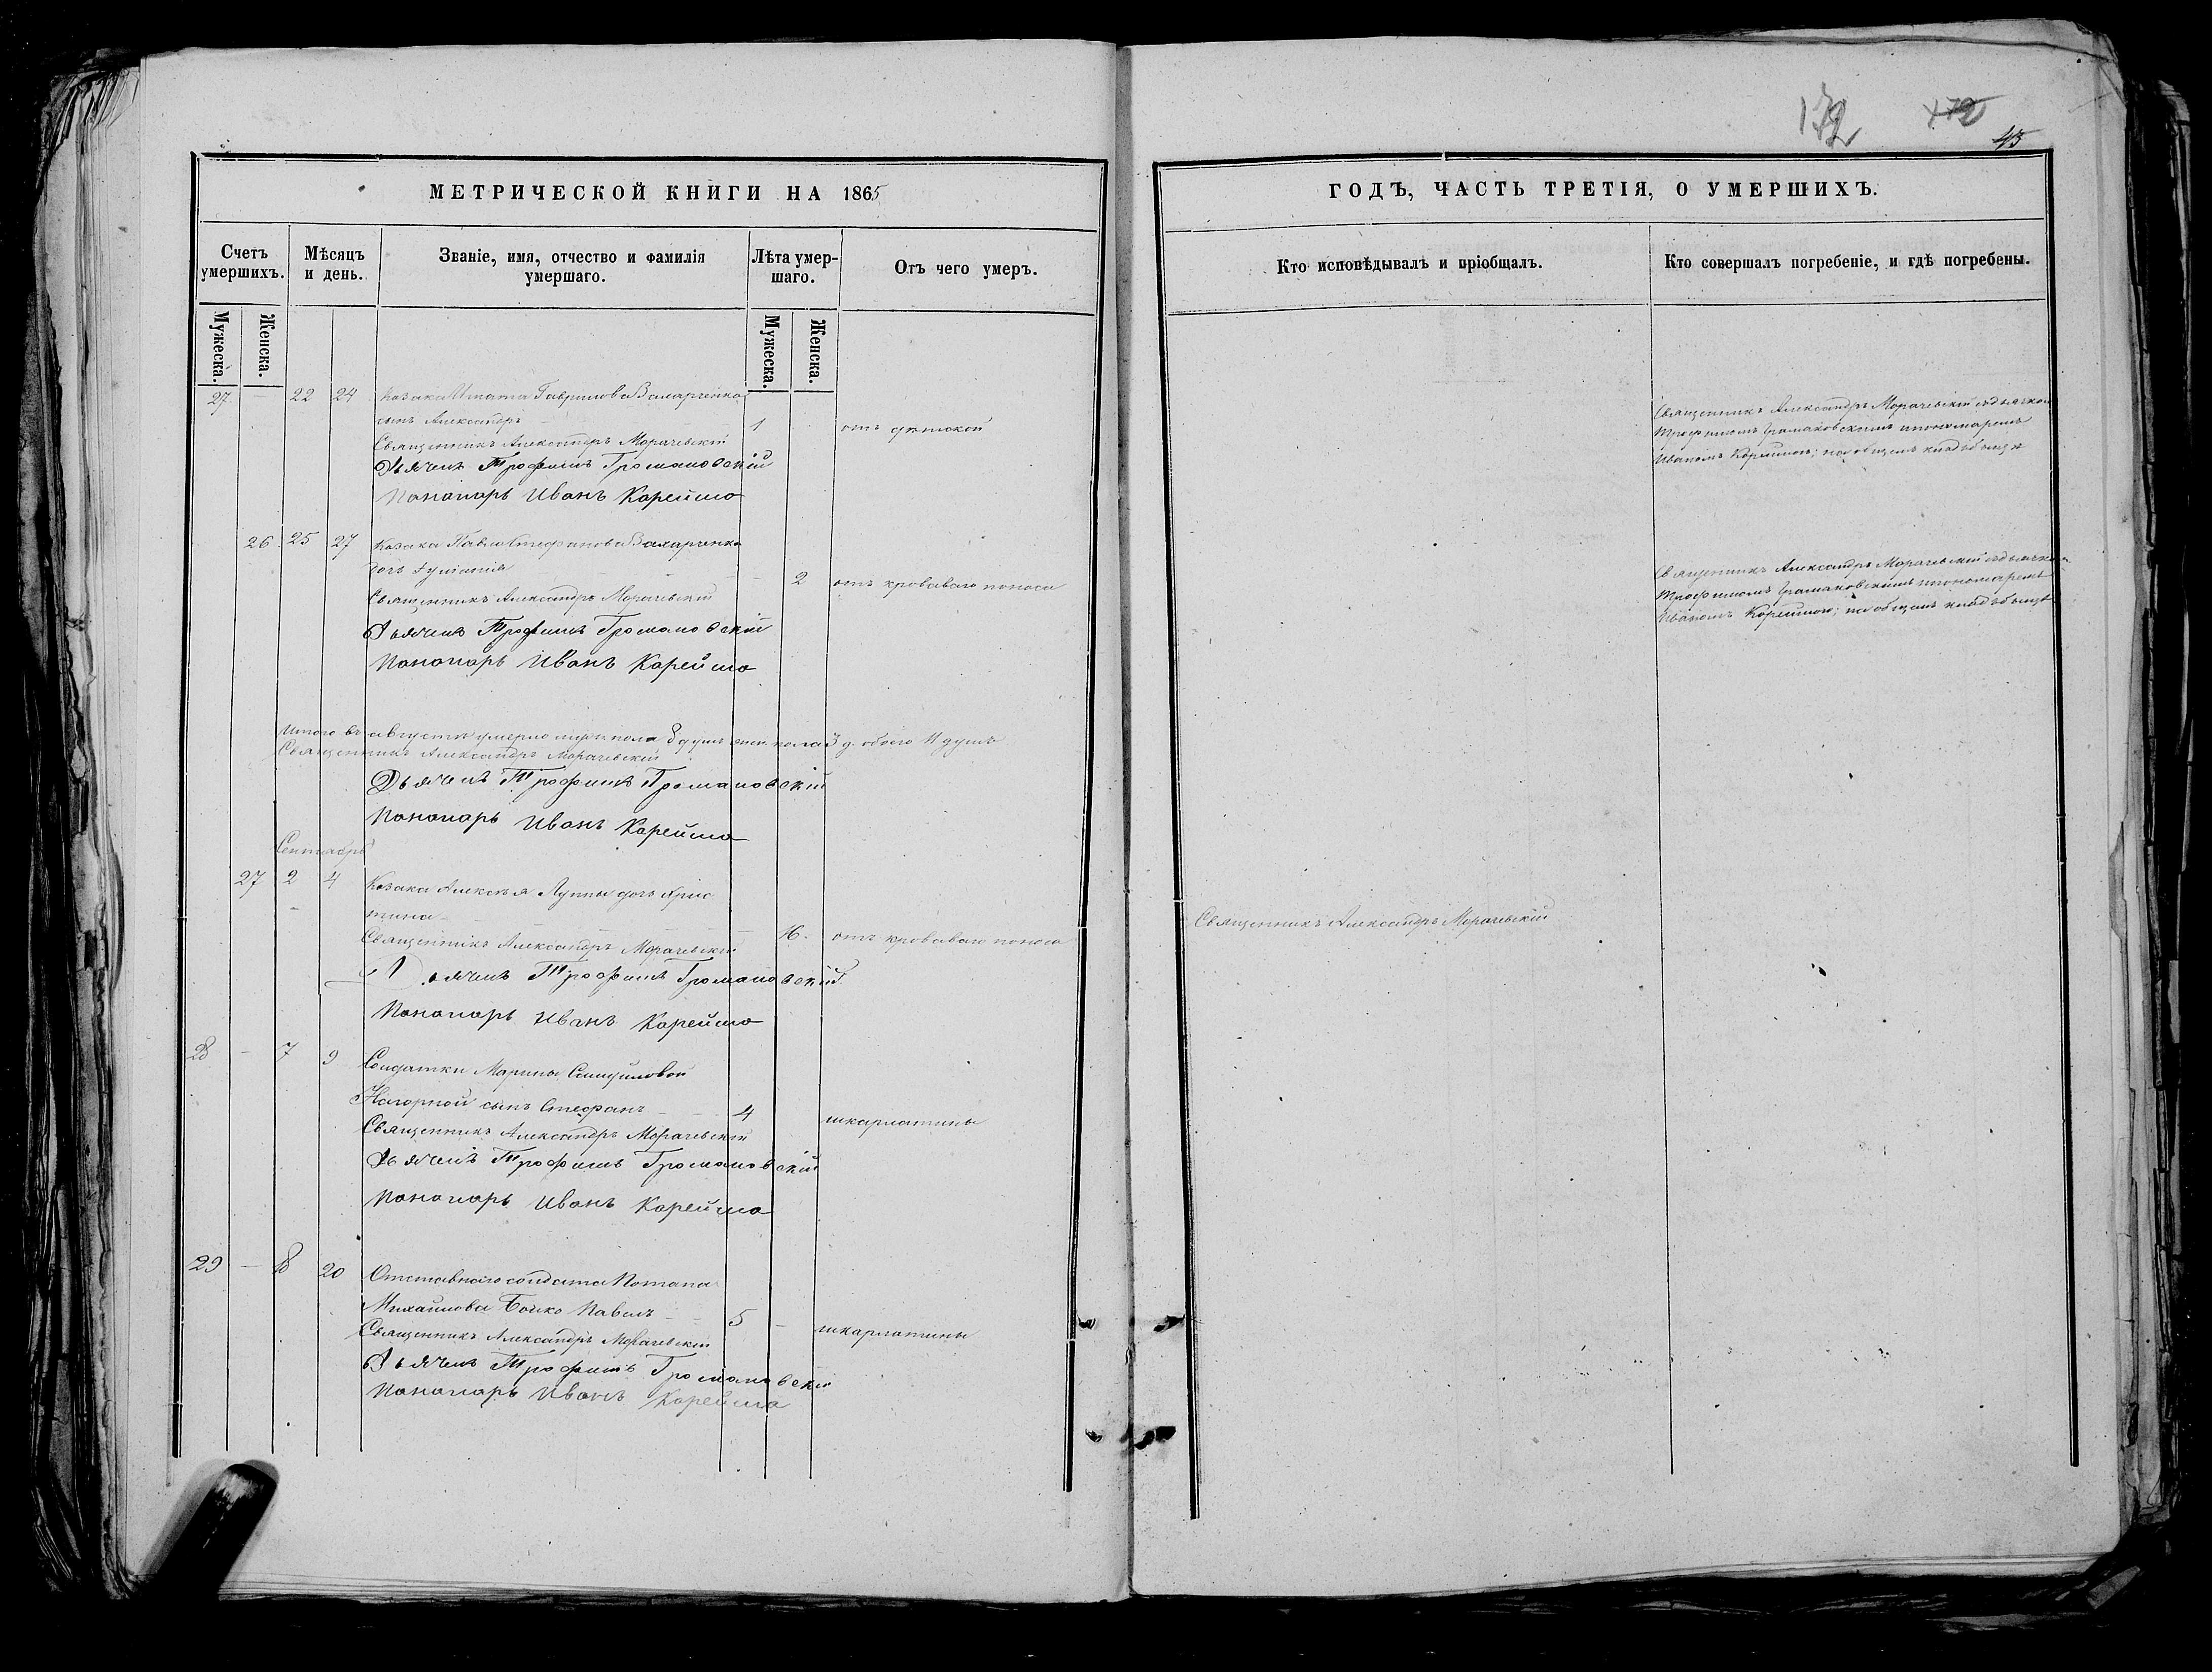 172 172
43
МЕТРИЧЕСКОЙ КНИГИ НА 1865
ГОДЪ, ЧАСТЬ ТРЕТІЯ, О УМЕРШИХЪ.
Счетъ умершихъ.
Мѣсяцъ и день.
Званіе, имя, отчество и фамилія умершаго.
Лѣта умер-шаго.
Отъ чего умеръ.
Кто исповѣдывалъ и пріобщалъ.
Кто совершалъ погребеніе, и гдѣ погребены.
Мужеска.
Женска.
Мужеска.
Женска.
27 — 22 24 Козака Гаврилова Захарченка
сынъ Александръ 1 отъ дѣтской
Священникъ Александръ Морачевскій
Дьячекъ Трофимъ Громаковскій
Пономарь Иванъ Корейшо
Священникъ Александръ Морачевскій съ дьячкомъ
Трофимомъ Громаковскимъ и пономаремъ
Иваномъ Корейшою; на общемъ кладбищѣ
26 25 27 Козака Павла Стефанова Захарченка
дочь 2 отъ кроваваго поноса
Священникъ Александръ Морачевскій
Дьячекъ Трофимъ Громаковскій
Пономарь Иванъ Корейшо
Священникъ Александръ Морачевскій съ дьячкомъ
Трофимомъ Громаковскимъ и пономаремъ
Иваномъ Корейшою; на общемъ кладбищѣ
Итого въ августѣ умерло муж. пола 8 душъ жен. пола 3 д. обоего 11 душъ
Священникъ Александръ Морачевскій
Дьячекъ Трофимъ Громаковскій
Пономарь Иванъ Корейшо
Сентябрь
27 2 4 Козака Алексѣя Луппы дочь Хрис
тина 16. отъ кроваваго поноса
Священникъ Александръ Морачевскій
Священникъ Александръ Морачевскій
Дьячекъ Трофимъ Громаковскій
Пономарь Иванъ Корейшо
28 — 7 9 Солдатки Марины Самуиловой
Нагорной сынъ Стефанъ 4 шкарлатины
Священникъ Александръ Морачевскій
Дьячекъ Трофимъ Громаковскій
Пономарь Иванъ Корейшо
29 — 18 20 Отставнаго солдата Потапа
Михайлова Бойко Павелъ 5 — шкарлатины
Священникъ Александръ Морачевскій
Дьячекъ Трофимъ Громаковскій
Пономарь Иванъ Корейшо